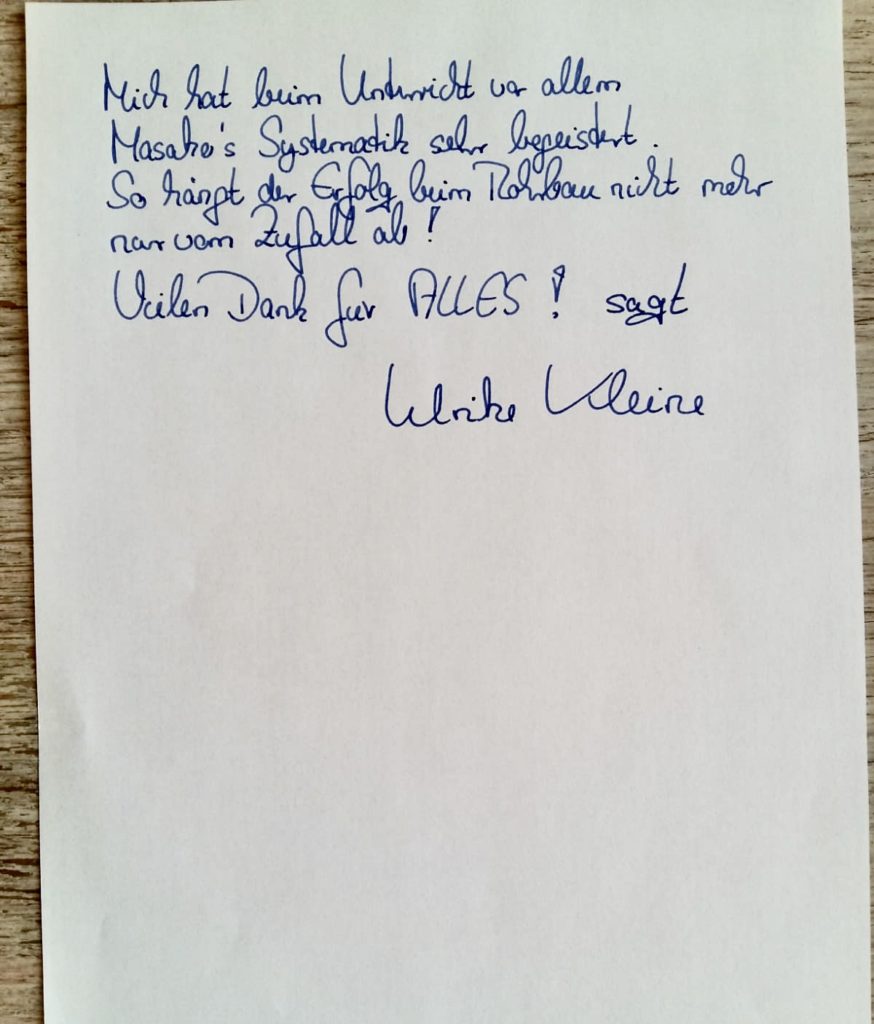 Mich hat beim Unterricht vor allem
Masako's Systematik sehr begeistert.
So hängt der Erfolg beim Rohrbau nicht mehr
nur vom Zufall ab!
Vielen Dank für ALLES! sagt
Ulrike Kleine